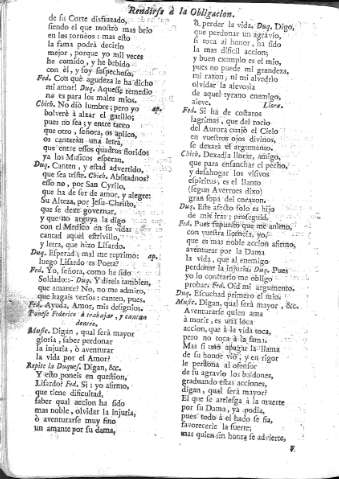 Rendirse à la Obligacion.
de su Corte disfrazado,
siendo el que mostrò mas brio
en los torneos: mas esto
la fama podrà decirlo
mejor, porque yo mil veces
he comido, y he bebido
con èl, y soy sospechoso.
Fed. Con què agudeza le ha dicho
mi amor! Duq. Aquesse remedio
no es para los males mios.
Chich. No diò lumbre; pero yo ap.
bolverè à alzar el gatillo;
pues no sea; y entre tanto
que otro, señora, os aplico,
os cantaràn una letra,
que entre essos quadros floridos
ya los Musicos esperan.
Duq. Canten, y estad advertido,
que sea triste. Chich. Abstinados?
esso no, por San Cyrilo,
que ha de ser de amor, y alegre:
Su Alteza, por Jesu-Christo,
que se dexe governar,
y que no arguya la digo
con el Medico en su vida:
cantad aquel estrivillo,
y letra, que hizo Lisardo.
Duq. Esperad; mal me reprimo: ap.
luego Lisardo es Poeta?
Fed. Yo, señora, como he sido
Soldado:- Duq. Y direis tambien,
que amante? No, no me admiro,
que hagais versos: canten, pues.
Fed. Ayuda, Amor, mis designios.
Ponese Federico à trabajar, y cantan
dentro.
Music. Digan, qual serà mayor
gloria, saber perdonar
la injuria, ò aventurar
la vida por el Amor?
Repite la Duquesa. Digan, &c.
Y esto poneis en question,
Lisardo? Fed. Si; y yo afirmo,
que tiene dificultad,
saber qual accion ha sido
mas noble, olvidar la injuria,
ò aventurarse muy fino
un amante por su dama,
à perder la vida. Duq. Digo,
que perdonar un agravio,
si toca al honor, ha sido
la mas dificil accion;
y buen exemplo es el mio,
pues no puede mi grandeza,
mi razon, ni mi alvedrio
olvidar la alevosìa
de aquel tyrano enemigo,
aleve. Llora.
Fed. Si ha de costaros
lagrimas, que del rocìo
del Aurora cuajò el Cielo
en vuestros ojos divinos,
se dexarà el argumento.
Chich. Dexadla llorar, amigo,
que para ensanchar el pecho,
y desahogar los vivos
espiritus, es el llanto
(segun Averroes dixo)
gran sopa del corazon.
Duq. Este afecto solo es hijo
de mis iras; proseguid.
Fed. Pues supuesto que me animo,
con vuestra licencia, yo
que es mas noble accion afirmo,
aventurar por la Dama
la vida, que al enemigo
perdonar la injuria. Duq. Pues
yo lo contrario me obligo
probar. Fed. Oid mi argumento.
Duq. Escuchad primero el mio.
Music. Digan, qual serà mayor, &c.
Aventurarse quien ama
à morir, es una loca
accion, que à la vida toca,
pero no toca à la fama.
Mas si esta apagar la llama
de su honde viò, y en rigor
le perdona al ofensor
de su agravio los baldones,
graduando estas acciones,
digan, qual serà mayor?
El que se arriesga à la muerte
por su Dama, ya podia,
pues todo à el hado se fia,
favorecerle la suerte;
mas quien sin honra se advierte,